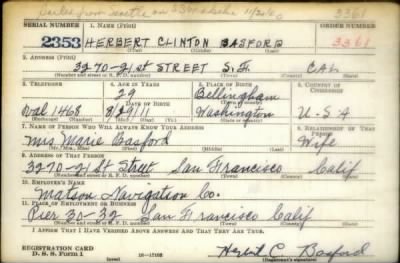 Seattle on 11/26/40 3361
SERIAL NUMBER 1. NAME (Print) ORDER NUMBER
2353 HERBERT CLINTON BASFORD 3361
(First) (Middle) (Last)
2. ADDRESS (Print)
3270-21st STREET S.F. CAL
(Number and street or R. F. D. number) (Town) (County) (State)
3. TELEPHONE 4. AGE IN YEARS 5. PLACE OF BIRTH 6. COUNTRY OF CITIZENSHIP
29 Bellingham
DATE OF BIRTH (Town or county)
Val 1468 8/ /11 Washington U-S A
(Exchange) (Number) (Mo.) (Day) (Yr.) (State or country)
7. NAME OF PERSON WHO WILL ALWAYS KNOW YOUR ADDRESS 8. RELATIONSHIP OF THAT PERSON
Mrs Marie Basford Wife
(Mr., Mrs., Miss) (First) (Middle) (Last)
9. ADDRESS OF THAT PERSON
3270-21st Street San Francisco Calif
(Number and street or R. F. D. number) (Town) (County) (State)
10. EMPLOYER'S NAME
Matson Navigation Co.
11. PLACE OF EMPLOYMENT OR BUSINESS
Pier 30-32 San Francisco Calif
(Number and street or R. F. D. number) (Town) (County) (State)
I AFFIRM THAT I HAVE VERIFIED ABOVE ANSWERS AND THAT THEY ARE TRUE.
REGISTRATION CARD
D. S. S. Form 1 16-17105 Herbert C Basford
(over) (Registrant's signature)